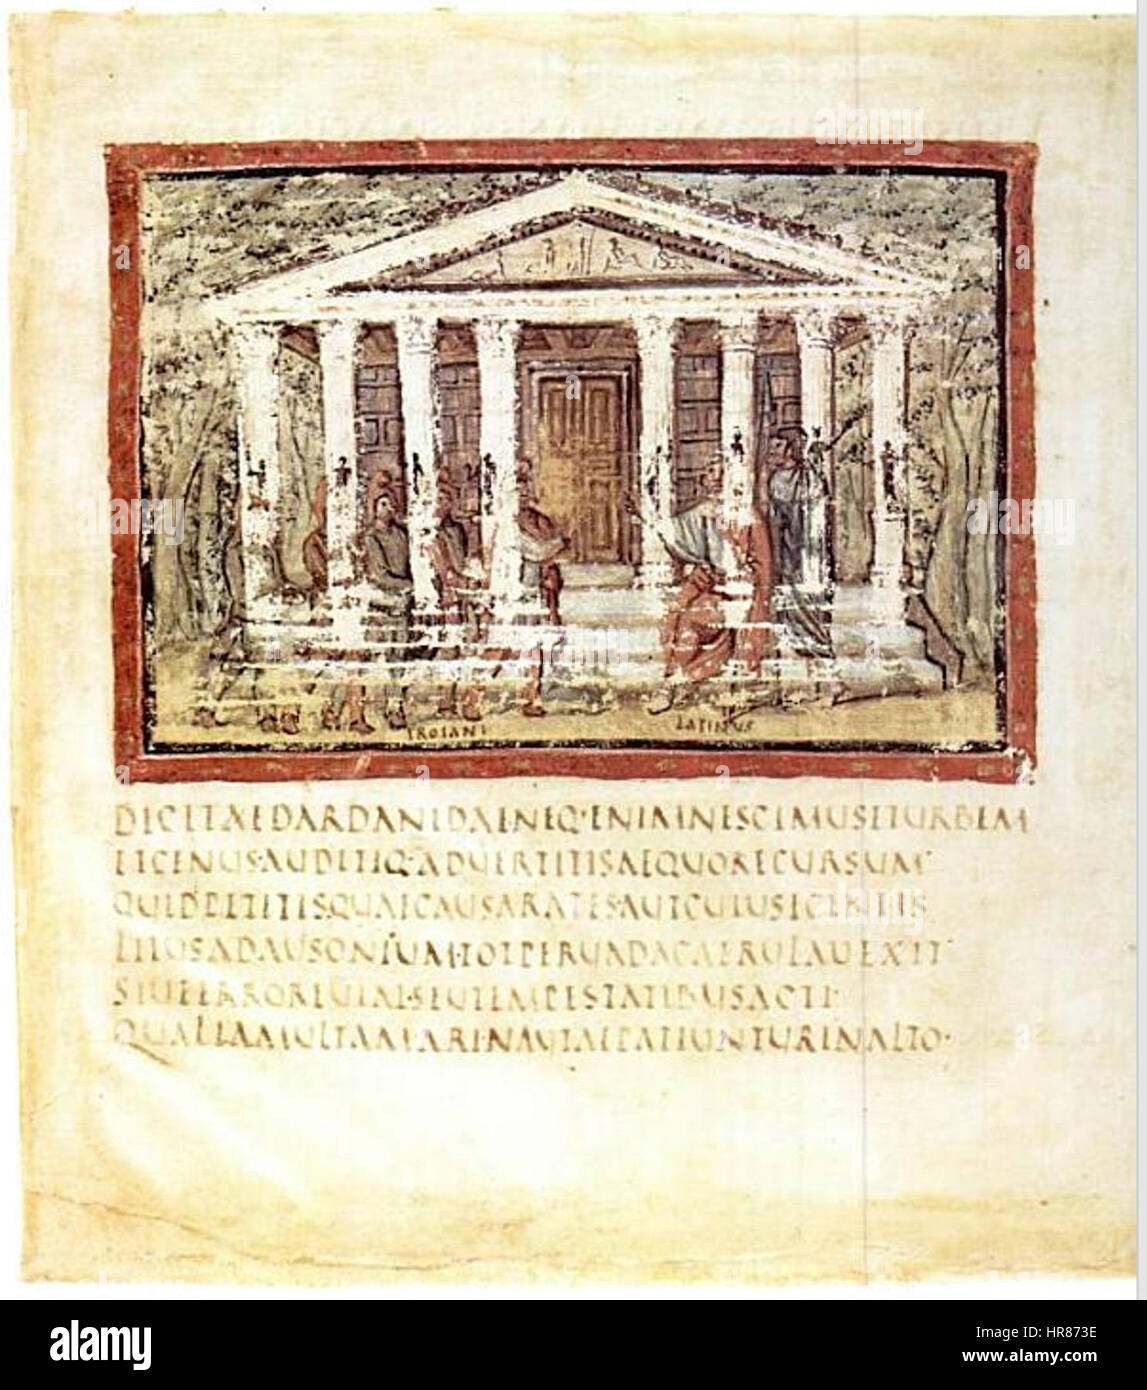 alamy
TROIANI LATINUS
DICITAEDARDANIDAENEQ·ENIMNESCIMUSETURBEM
ETGENUS·AUDITIQ·ADUERTITISAEQUORECURSUM
QUIDPETITIS·QUAECAUSARATES·AUTCUIUSEGENTIS
LITUSADAUSONIUM·TOTPERUADACAERULAUEXIT
SIUEERROREUIAE·SEUTEMPESTATIBUSACTI·
QUALIAMULTAMARI·NAUTAEPATIUNTURINALTO·
alamy
Image ID: HR873E
www.alamy.com